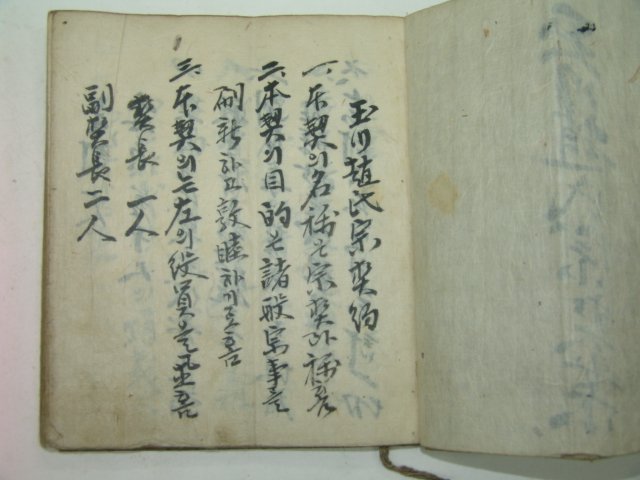 玉川趙氏宗契約
一、本契의名稱은宗契라稱홈
二、本契의目的은諸般宗事을
刷新하고敦睦하기로홈
三、本契의는左의役員을置홈
契長 一人
副契長 二人